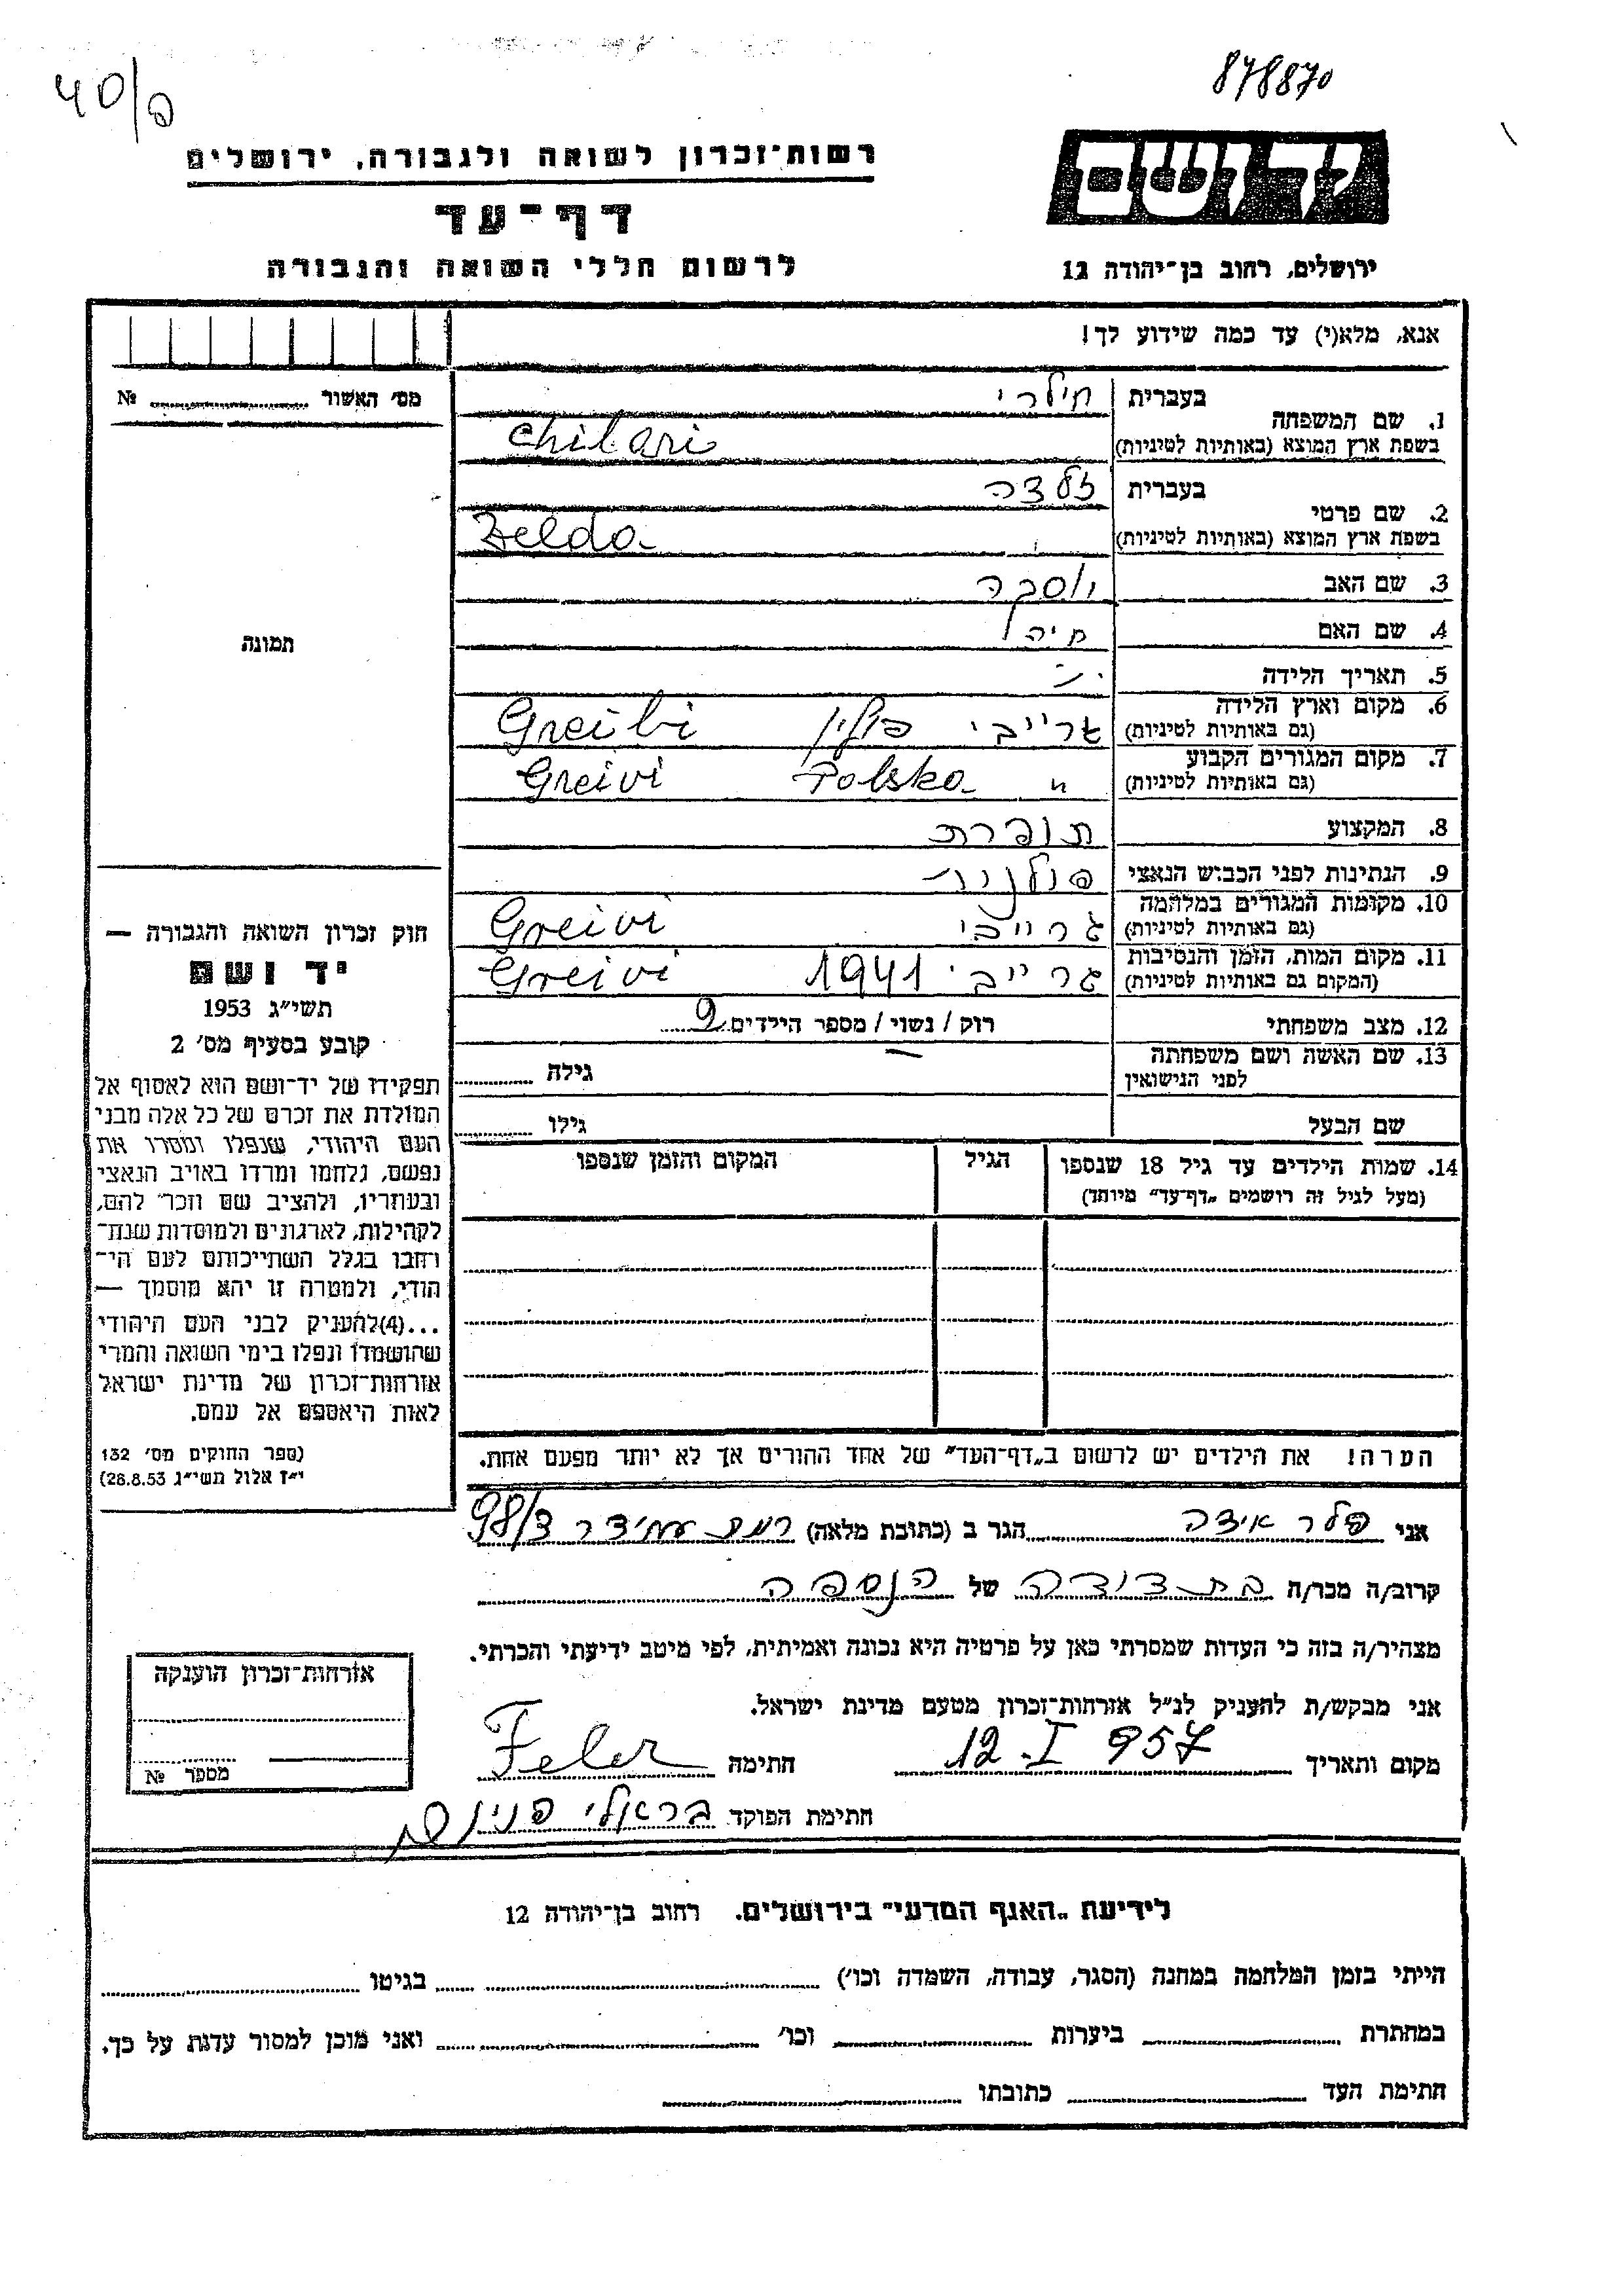 878870
40/פ
רשות־זכרון לשואה ולגבורה, ירושלים
יד ושם
דף־עד
לרשום חללי השואה והגבורה
ירושלים, רחוב בן־יהודה 12
אנא, מלא(י) עד כמה שידוע לך!
מס׳ האשור № 
1. שם המשפחה בעברית חילרי
בשפת ארץ המוצא (באותיות לטיניות) Chilari
2. שם פרטי בעברית זלדה
בשפת ארץ המוצא (באותיות לטיניות) Zelda
3. שם האב
4. שם האם חיה
תמונה
5. תאריך הלידה
6. מקום וארץ הלידה
(גם באותיות לטיניות) גרייבי פולין Greibi
7. מקום המגורים הקבוע
(גם באותיות לטיניות) " Polska Greivi
8. המקצוע תופרת
9. הנתינות לפני הכבוש הנאצי פולנית
10. מקומות המגורים במלחמה
(גם באותיות לטיניות) גרייבי Greivi
11. מקום המות, הזמן והנסיבות
(המקום גם באותיות לטיניות) גרייבי 1941 Greivi
12. מצב משפחתי רוק / נשוי / מספר הילדים
13. שם האשה ושם משפחתה
לפני הנישואין גילה
שם הבעל גילו
14. שמות הילדים עד גיל 18 שנספו הגיל המקום והזמן שנספו
(מעל לגיל זה רושמים „דף־עד” מיוחד)
חוק זכרון השואה והגבורה —
יד ושם
תשי״ג 1953
קובע בסעיף מס׳ 2
תפקידו של יד־ושם הוא לאסוף אל
המולדת את זכרם של כל אלה מבני
העם היהודי, שנפלו ומסרו את
נפשם, נלחמו ומרדו באויב הנאצי
ובעוזריו, ולהציב שם וזכר להם,
לקהילות, לארגונים ולמוסדות שנח־
רחבו בגלל השתייכותם לעם הי־
הודי, ולמטרה זו יהא מוסמך —
...(4)להעניק לבני העם היהודי
שהושמדו ונפלו בימי השואה והמרי
אזרחות־זכרון של מדינת ישראל
לאות היאספם אל עמם.
(ספר החוקים מס׳ 132
י״ז אלול תשי״ג 28.8.53)
הערה! את הילדים יש לרשום ב„דף־העד” של אחד ההורים אך לא יותר מפעם אחת.
אני פלר אידה הגר ב (כתובת מלאה) רמת עמידר 98/3
קרוב/ה מכר/ה בת דודה של הנספה
מצהיר/ה בזה כי העדות שמסרתי כאן על פרטיה היא נכונה ואמיתית, לפי מיטב ידיעתי והכרתי.
אני מבקש/ת להעניק לנ״ל אזרחות־זכרון מטעם מדינת ישראל.
מקום ותאריך 12.I 957 חתימה Feler
חתימת הפוקד
אזרחות־זכרון הוענקה
מספר №
לידיעת „האגף המדעי” בירושלים. רחוב בן־יהודה 12
הייתי בזמן המלחמה במחנה (הסגר, עבודה, השמדה וכו׳) בגיטו
במחתרת ביערות וכו׳ ואני מוכן למסור עדות על כך.
חתימת העד כתובתו